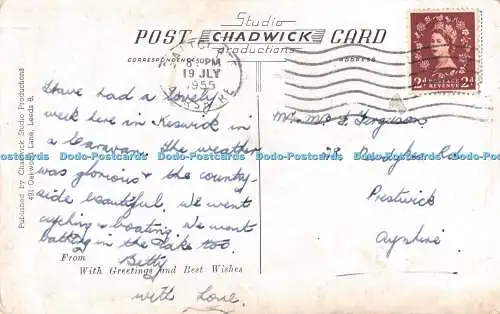 Studio
POST CHADWICK CARD
Productions
CORRESPONDENCE
ADDRESS
PM
19 JLY
1955
REVENUE
2d 2d
Published by Chadwick Studio Productions
491 Oakwood Lane, Leeds 8.
I have had a lovely
week here in Keswick in
a caravan. The weather
was glorious & the country-
side beautiful. We went
cycling & boating. We went
bathing in the lake too.
From Betty
With Greetings and Best Wishes
with Love.
Mr. Mrs Ferguson
Rd
Prestwick
Ayrshire
Dodo-Postcards Dodo-Postcards Dodo-Postcards Dodo-Postcards Dodo-Postcards